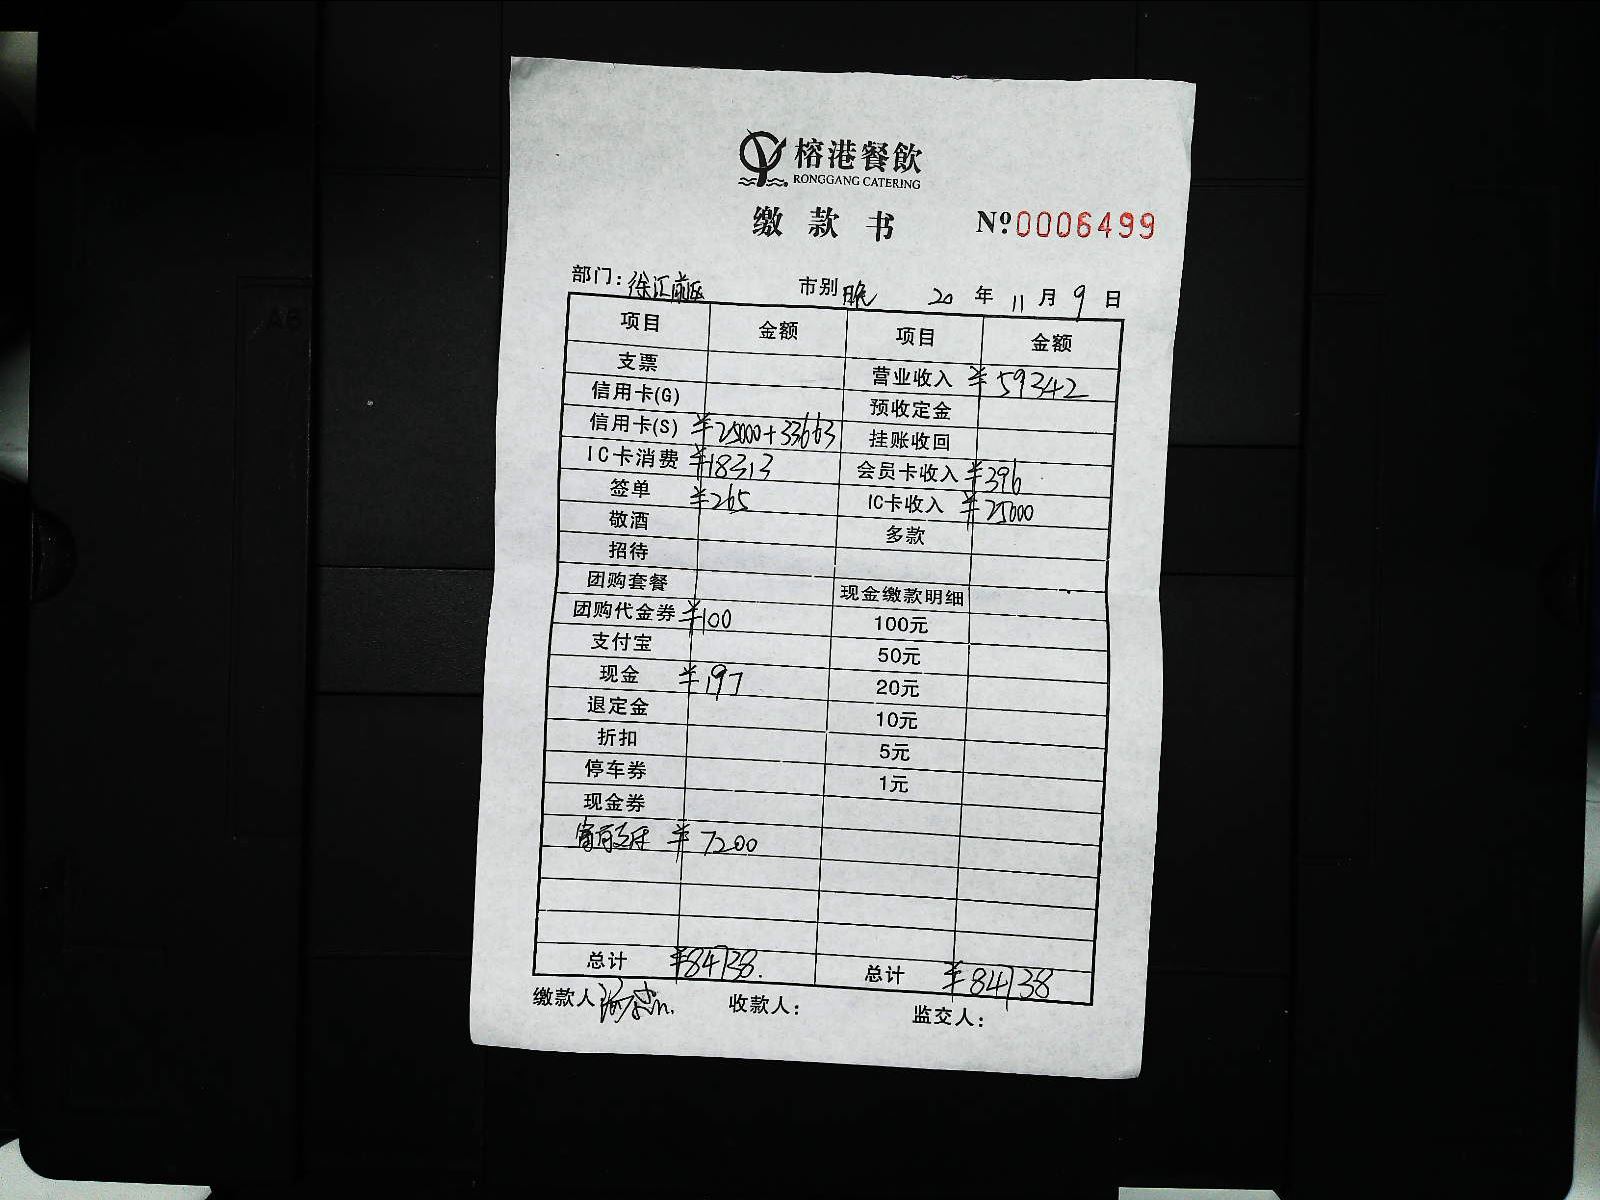 榕港餐飲
RONGGANG CATERING
缴款书 №0006499
部门:徐汇 市别 晚 20 年 11 月 9 日
项目 金额 项目 金额
支票 营业收入 ¥59342
信用卡(G) 预收定金
信用卡(S) ¥25000+33663 挂账收回
IC卡消费 ¥18313 会员卡收入 ¥396
签单 ¥265 IC卡收入 ¥25000
敬酒 多款
招待
团购套餐 现金缴款明细
团购代金券 ¥100 100元
支付宝 50元
现金 ¥197 20元
退定金 10元
折扣 5元
停车券 1元
现金券
支付 ¥7200
总计 ¥84738. 总计 ¥84738
缴款人 收款人: 监交人: